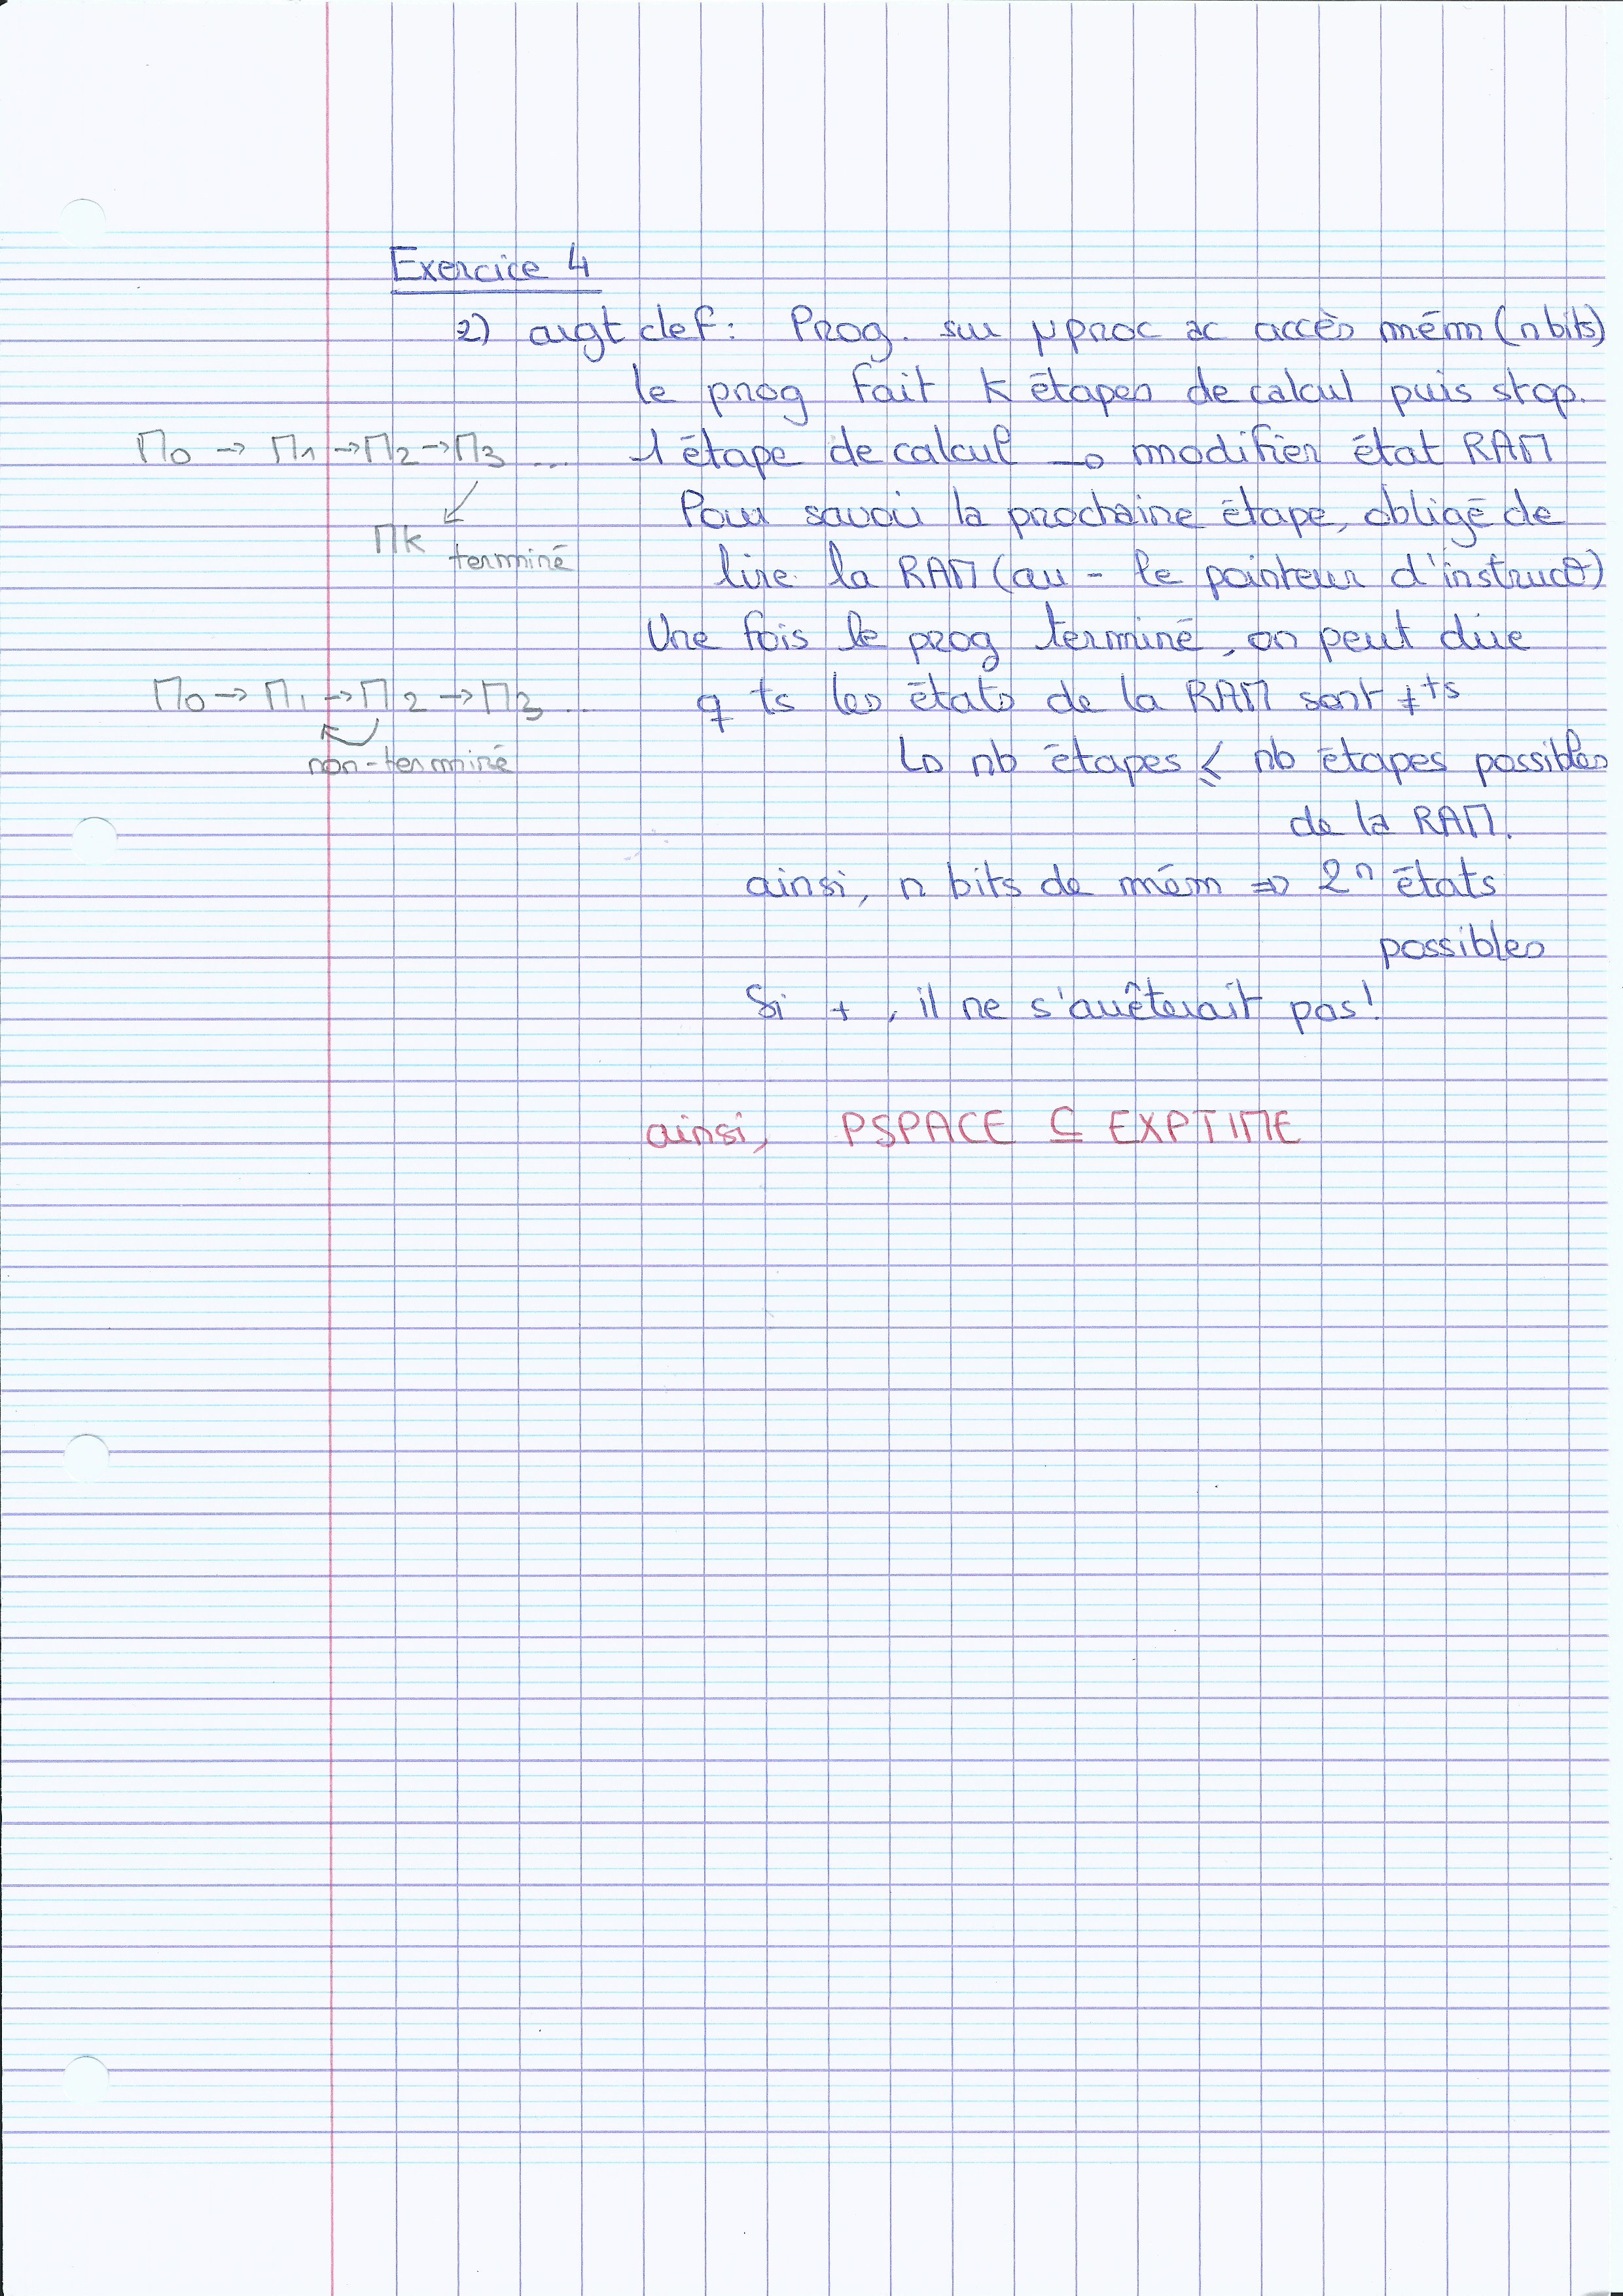 Exercice 4
2) argt clef : Prog. sur µproc ac accès mém (n bits)
le prog fait k étapes de calcul puis stop.
M0 → M1 → M2 → M3 ...
1 étape de calcul → modifier état RAM
Pour savoir la prochaine étape, obligé de
Mk terminé
lire la RAM (au - le pointeur d'instruct°)
Une fois le prog terminé, on peut dire
M0 → M1 → M2 → M3 ...
q ts les états de la RAM sont ≠ts
non-terminé
↳ nb étapes ⩽ nb étapes possibles
de la RAM.
ainsi, n bits de mém ⇒ 2ⁿ états
possibles
Si + , il ne s'arrêterait pas!
ainsi, PSPACE ⊆ EXPTIME